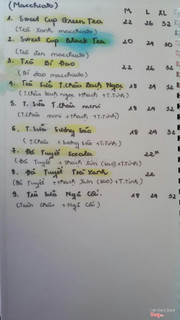 (Macchiato) M L XL
1. Sweet Cup Green Tea 22 26 32
(Trà xanh macchiato)
2. Sweet Cup Black Tea 20 24 30
(Trà đen macchiato)
3. Trà Bí Đao 22 26
(Bí đao macchiato)
4. Trà Sữa T.Châu Bạch Ngọc 18 24 32
(T.Châu bạch ngọc + thạch + T.Tinh)
5. T. Sữa T.Châu mini 18 24 32
(T.Châu mini + thạch + T.Tinh)
6. T. Sữa Sương Sáo 18 24 32
(T.Châu + Sương Sáo)
7. Đá Tuyết Socola 22
(Đá Tuyết + thạch + T.Tinh)
8. Đá Tuyết Trà Xanh 22
(Đá Tuyết + thạch + T.Tinh)
9. Trà Sữa Ngũ Cốc 18 24 32
(Trân Châu + Ngũ Cốc)